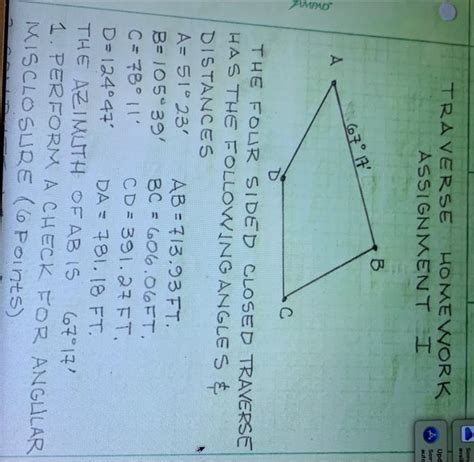 TRAVERSE HOMEWORK
ASSIGNMENT I
A
B
67°17'
D
C
THE FOUR SIDED CLOSED TRAVERSE
HAS THE FOLLOWING ANGLES &
DISTANCES
A = 51°23' AB = 713.93 FT.
B = 105°39' BC = 606.06 FT.
C = 78°11' CD = 391.27 FT.
D = 124°47' DA = 781.18 FT.
THE AZIMUTH OF AB IS 67°17'
1. PERFORM A CHECK FOR ANGULAR
MISCLOSURE (6 POINTS)